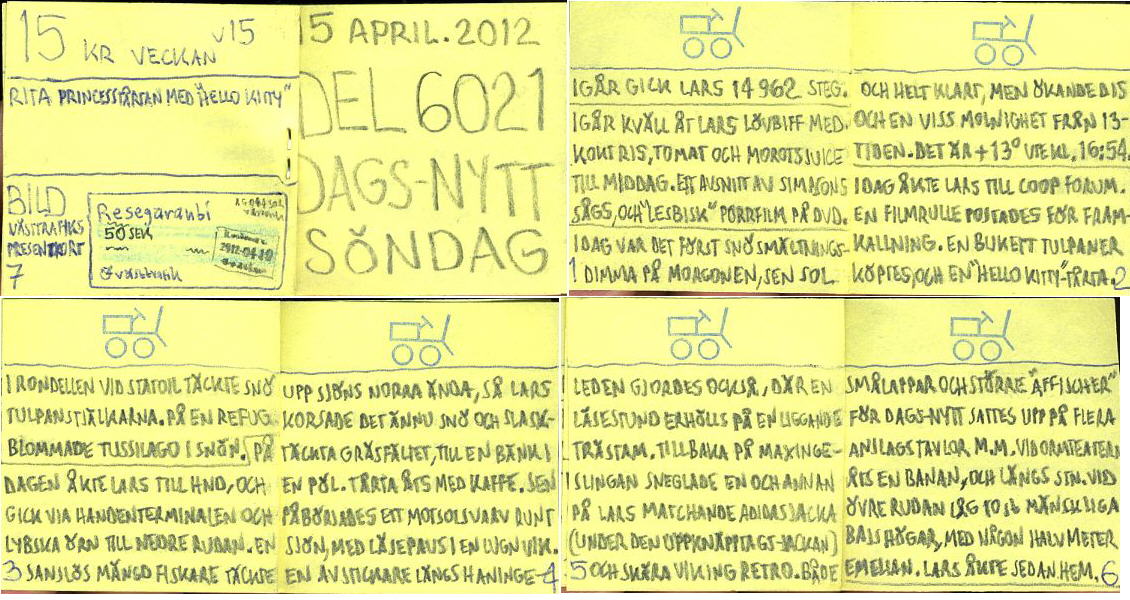 15 KR VECKAN V15
RITA PRINCESSTÅRTAN MED "HELLO KITTY"
BILD
VÄSTTRAFIKS
PRESENTKORT
7
Resegaranti
50 SEK
2012-04-10
15 APRIL. 2012
DEL 6021
DAGS-NYTT
SÖNDAG
IGÅR GICK LARS 14962 STEG.
IGÅR KVÄLL ÅT LARS LÖVBIFF MED
KOKT RIS, TOMAT OCH MOROTSJUICE
TILL MIDDAG. ETT AVSNITT AV SIMPSONS
SÅGS, OCH "LESBISK" PORRFILM PÅ DVD.
IDAG VAR DET FÖRST SNÖSMÄLTNINGS-
1 DIMMA PÅ MORGONEN, SEN SOL
OCH HELT KLART, MEN ÖKANDE DIS
OCH EN VISS MOLNIGHET FRÅN 13-
TIDEN. DET ÄR +13° UTE KL. 16:54.
IDAG ÅKTE LARS TILL COOP FORUM.
EN FILMRULLE POSTADES FÖR FRAM-
KALLNING. EN BUKETT TULPANER
KÖPTES, OCH EN "HELLO KITTY"-TÅRTA. 2
I RONDELLEN VID STATOIL TÄCKTE SNÖ
TULPANSTJÄLKARNA. PÅ EN REFUG
BLOMMADE TUSSILAGO I SNÖN. PÅ
DAGEN ÅKTE LARS TILL HND, OCH
GICK VIA HANDENTERMINALEN OCH
LYBSKA ÖRN TILL NEDRE RUDAN. EN
3 SANSLÖS MÄNGD FISKARE TÄCKTE
UPP SJÖNS NORRA ÄNDA, SÅ LARS
KORSADE DET ÄNNU SNÖ OCH SLASK-
TÄCKTA GRÄSFÄLTET, TILL EN BÄNK I
EN PÖL. TÅRTA ÅTS MED KAFFE. SEN
PÅBÖRJADES ETT MOTSOLSVARV RUNT
SJÖN, MED LÄSEPAUS I EN LUGN VIK.
EN AVSTICKARE LÄNGS HANINGE- 4
LEDEN GJORDES OCKSÅ, DÄR EN
LÄSESTUND ERHÖLLS PÅ EN LIGGANDE
TRÄSTAM. TILLBAKA PÅ MAXINGE-
SLINGAN SNEGLADE EN OCH ANNAN
PÅ LARS MATCHANDE ADIDASJACKA
(UNDER DEN UPPKNÄPPTA G-S-JACKAN)
5 OCH SKÄRA VIKING RETRO. BÅDE
SMÅLAPPAR OCH STÖRRE "AFFISCHER"
FÖR DAGS-NYTT SATTES UPP PÅ FLERA
ANSLAGSTAVLOR M.M. VID ORMTEATERN
ÅTS EN BANAN, OCH LÄNGS STN. VID
ÖVRE RUDAN LÅG 10 st MÄNSKLIGA
BAJSHÖGAR, MED NÅGON HALVMETER
EMELLAN. LARS ÅKTE SEDAN HEM. 6